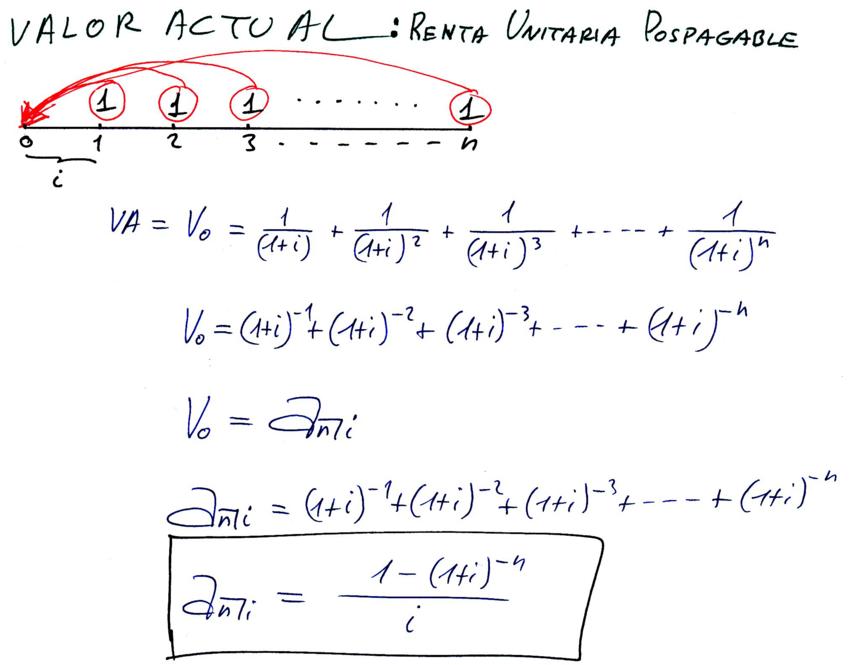 VALOR ACTUAL: RENTA UNITARIA POSPAGABLE
1 1 1 ........ 1
0 1 2 3 - - - - - - - n
i
VA = V₀ = 1/(1+i) + 1/(1+i)² + 1/(1+i)³ + ---- + 1/(1+i)ⁿ
V₀ = (1+i)⁻¹ + (1+i)⁻² + (1+i)⁻³ + - --- + (1+i)⁻ⁿ
V₀ = a n̅| i
a n̅| i = (1+i)⁻¹ + (1+i)⁻² + (1+i)⁻³ + ---- + (1+i)⁻ⁿ
a n̅| i = 1 - (1+i)⁻ⁿ / i